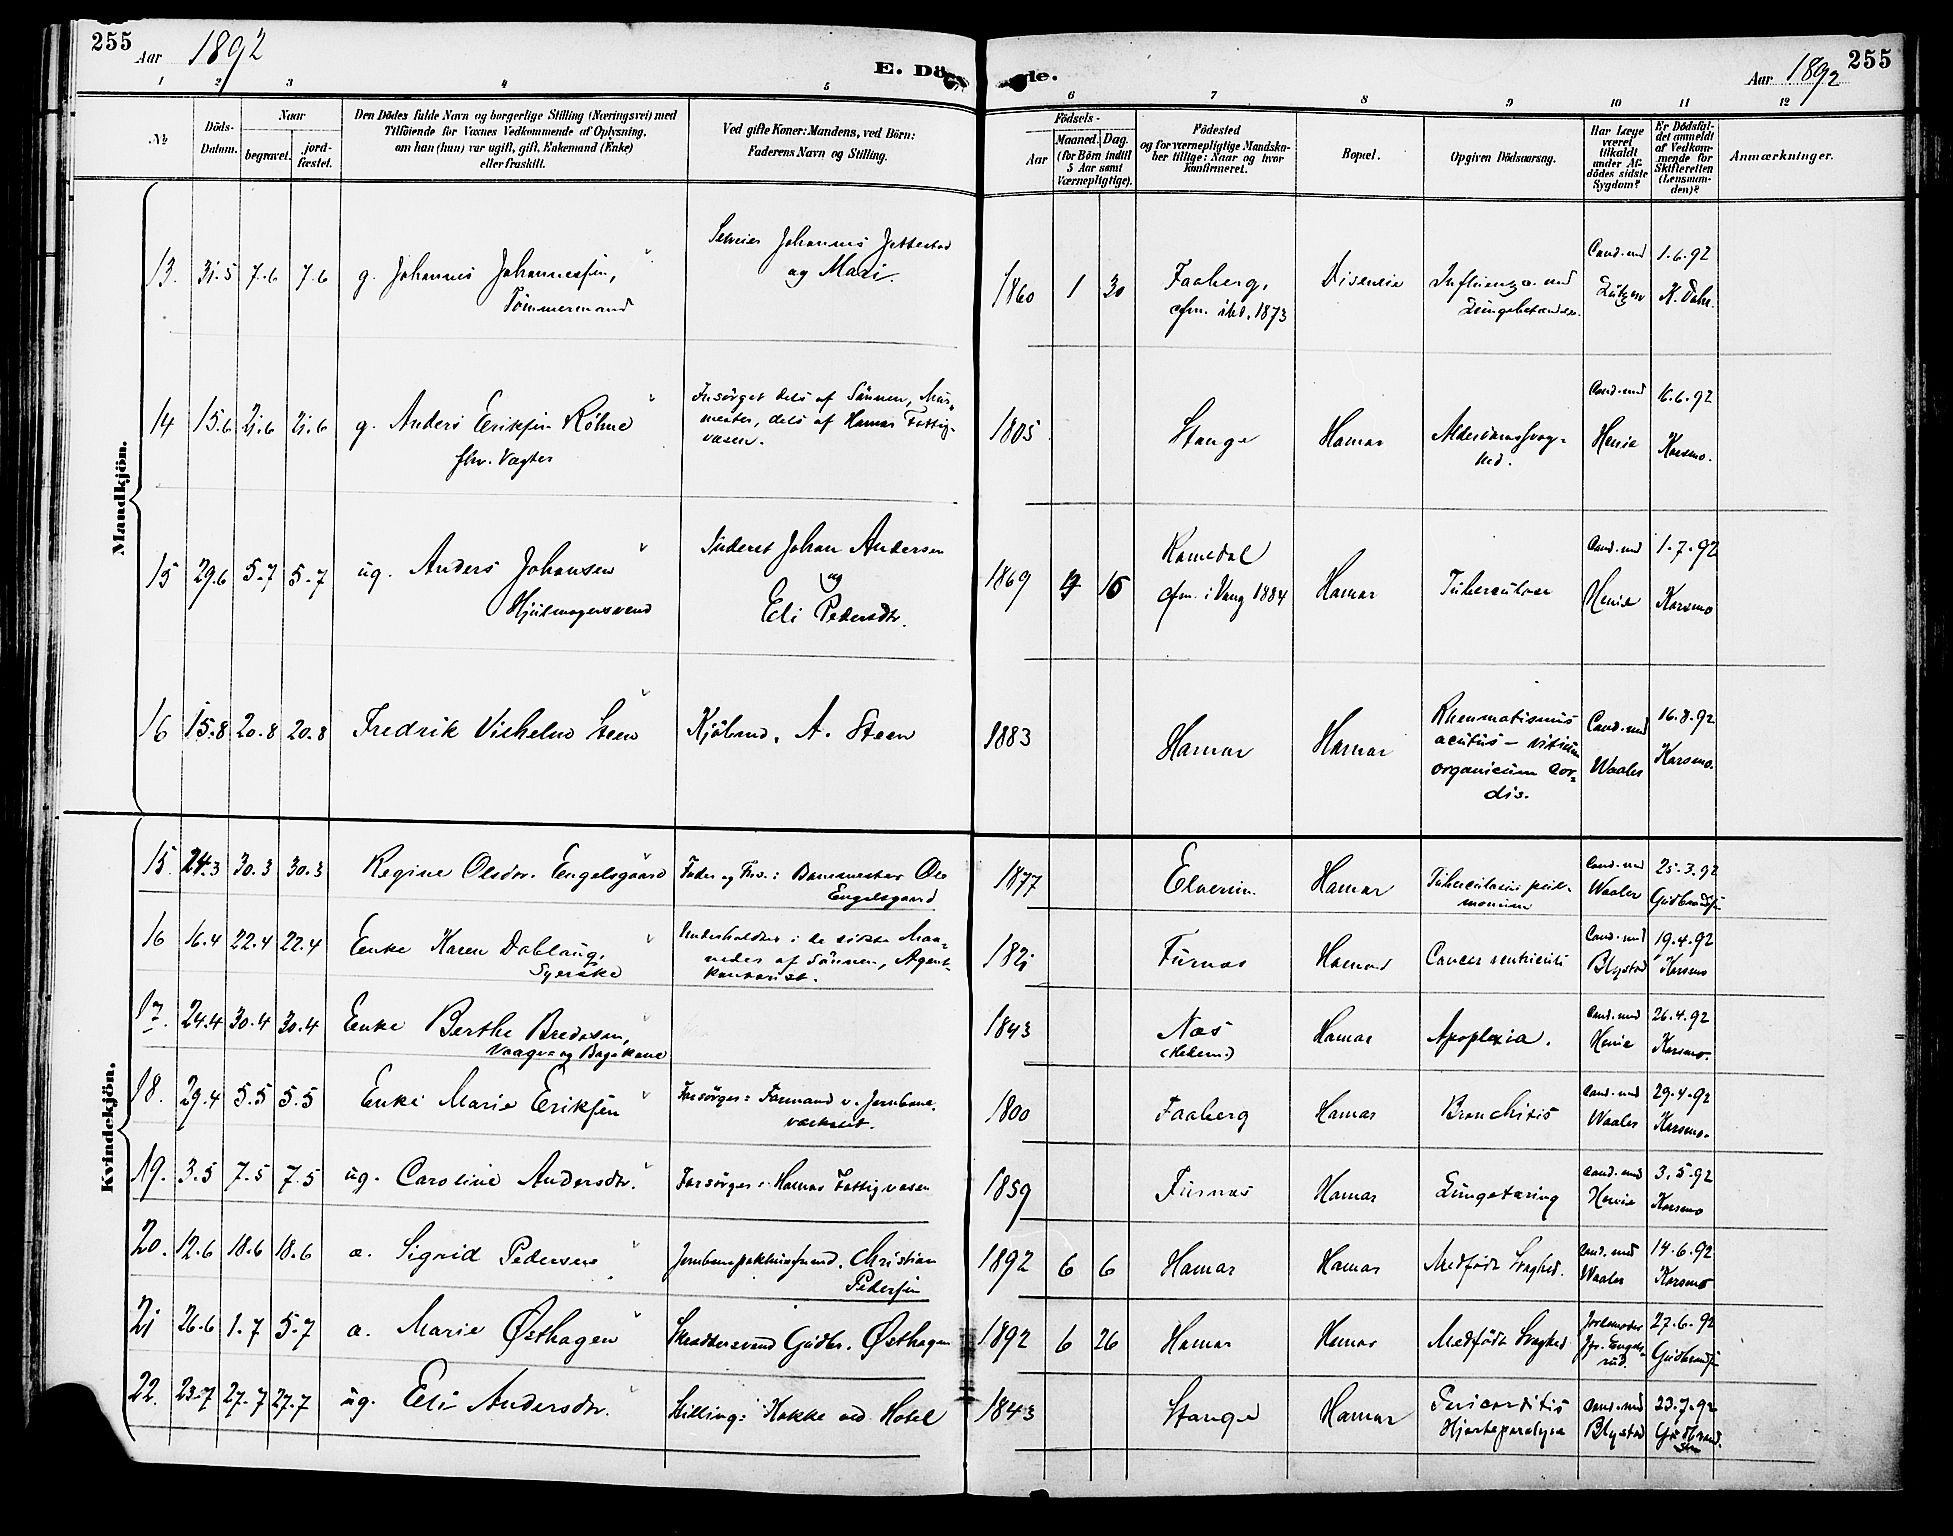 255
Aar 1892
E. Dö
de.
Aar 1892
255
1 2 3 4 5
6 7 8 9 10 11 12
No
Döds-Datum.
Naar
begravet.
jord-fæstet.
Den Dödes fulde Navn og borgerlige Stilling (Næringsvei) med
Tilföiende for Voxnes Vedkommende af Oplysning,
om han (hun) var ugift, gift, Enkemand (Enke)
eller fraskilt.
Ved gifte Koner: Mandens, ved Börn:
Faderens Navn og Stilling.
Födsels-
Aar
Maaned. Dag.
(for Börn indtil
5 Aar samt
Værnepligtige).
Födested
og for værnepligtige Mandska-
ber tillige: Naar og hvor
Konfirmeret.
Bopæl.
Opgiven Dödsaarsag.
Har Læge
været
tilkaldt
under Af-
dödes sidste
Sygdom?
Er Dödsfal-
det anmeldt
af Vedkom-
mende for
Skifteretten
(Lensman-
den)?
Anmærkninger.
Mandkjön.
13. 31.5 7.6 7.6 g. Johannes Johannessen,
Tömmermand
Johannes
og Mari.
1860 1 30 Faaberg,
cfm. ibd. 1873
Influenza med
Cand. med
Lützow
1.6.92
14 15.6 21.6 21.6 g. Anders Eriksen Röhne
fhv. Vægter
Forsörget dels af Sönnen, Mur-
mester, dels af Hamar Fattig-
væsen.
1805 Stange Hamar Alderdomssvag-
hed.
Cand. med
Henie
16.6.92
Karsmo.
15 29.6 5.7 5.7 ug. Anders Johansen
Hjulmagersvend
Johan Andersen
og
Eli Pedersdtr.
1869 9 16 Romedal
cfm. i Vang 1884
Hamar Tuberculose
Cand. med
Henie
1.7.92
Karsmo
16 15.8 20.8 20.8 Fredrik Vilhelm Steen
Kjöbmd. A. Steen
1883 Hamar Hamar Rheumatismus
acutus - vitium
organicum cor-
dis.
Cand. med
Waaler
16.8.92
Karsmo.
Kvindekjön.
15. 24.3 30.3 30.3 Regine Olsdtr. Engelsgaard
Fader og Fors.: Banemester Ole
Engelsgaard
1877 Elverum Hamar Tuberculosis pul-
monum
Cand. med
Waaler
25.3.92
Gudbrandsen
16 16.4 22.4 22.4 Enke Karen Dablaug,
Syerske
Underholdtes i de sidste Maa-
neder af Sönnen, Agent-
kontorist.
1821 Furnæs Hamar Cancer ventriculi
Cand. med
Blystad
19.4.92
Karsmo
17. 24.4 30.4 30.4 Enke Berthe Bredesen,
Vaage og Bagekone
1843 Næs
(Hedem.)
Hamar Apoplexia.
Cand. med
Henie
26.4.92
Karsmo.
18. 29.4 5.5 5.5 Enke Marie Eriksen
Forsörger: Formand v. Jernbane-
værkstet.
1800 Faaberg Hamar Bronchitis
Cand. med
Waaler
29.4.92
Karsmo.
19. 3.5 7.5 7.5 ug. Caroline Andersdtr.
Forsörger: Hamar Fattigvæsen
1859 Furnæs Hamar Lungetæring
Cand. med
Henie
3.5.92
Karsmo
20. 12.6 18.6 18.6 a. Sigrid Pedersen
Jernbanepakhusformd. Christian
Pedersen
1892 6 6 Hamar Hamar Medfödt Svaghed.
Cand. med
Waaler
14.6.92
Karsmo
21 26.6 1.7 5.7 a. Marie Østhagen
Skræddersvend Gudbr. Østhagen
1892 6 26 Hamar Hamar Medfödt Svaghed
Jordemoder
Jfr. Engels-
rud.
27.6.92
Gudbrandsen
22. 23.7 27.7 27.7 ug. Eli Andersdtr.
Stilling: Kokke ved Hotel
1843 Stange Hamar Pericarditis
Hjerteparalyse
Cand. med
Blystad
23.7.92
Gudbrand-
sen